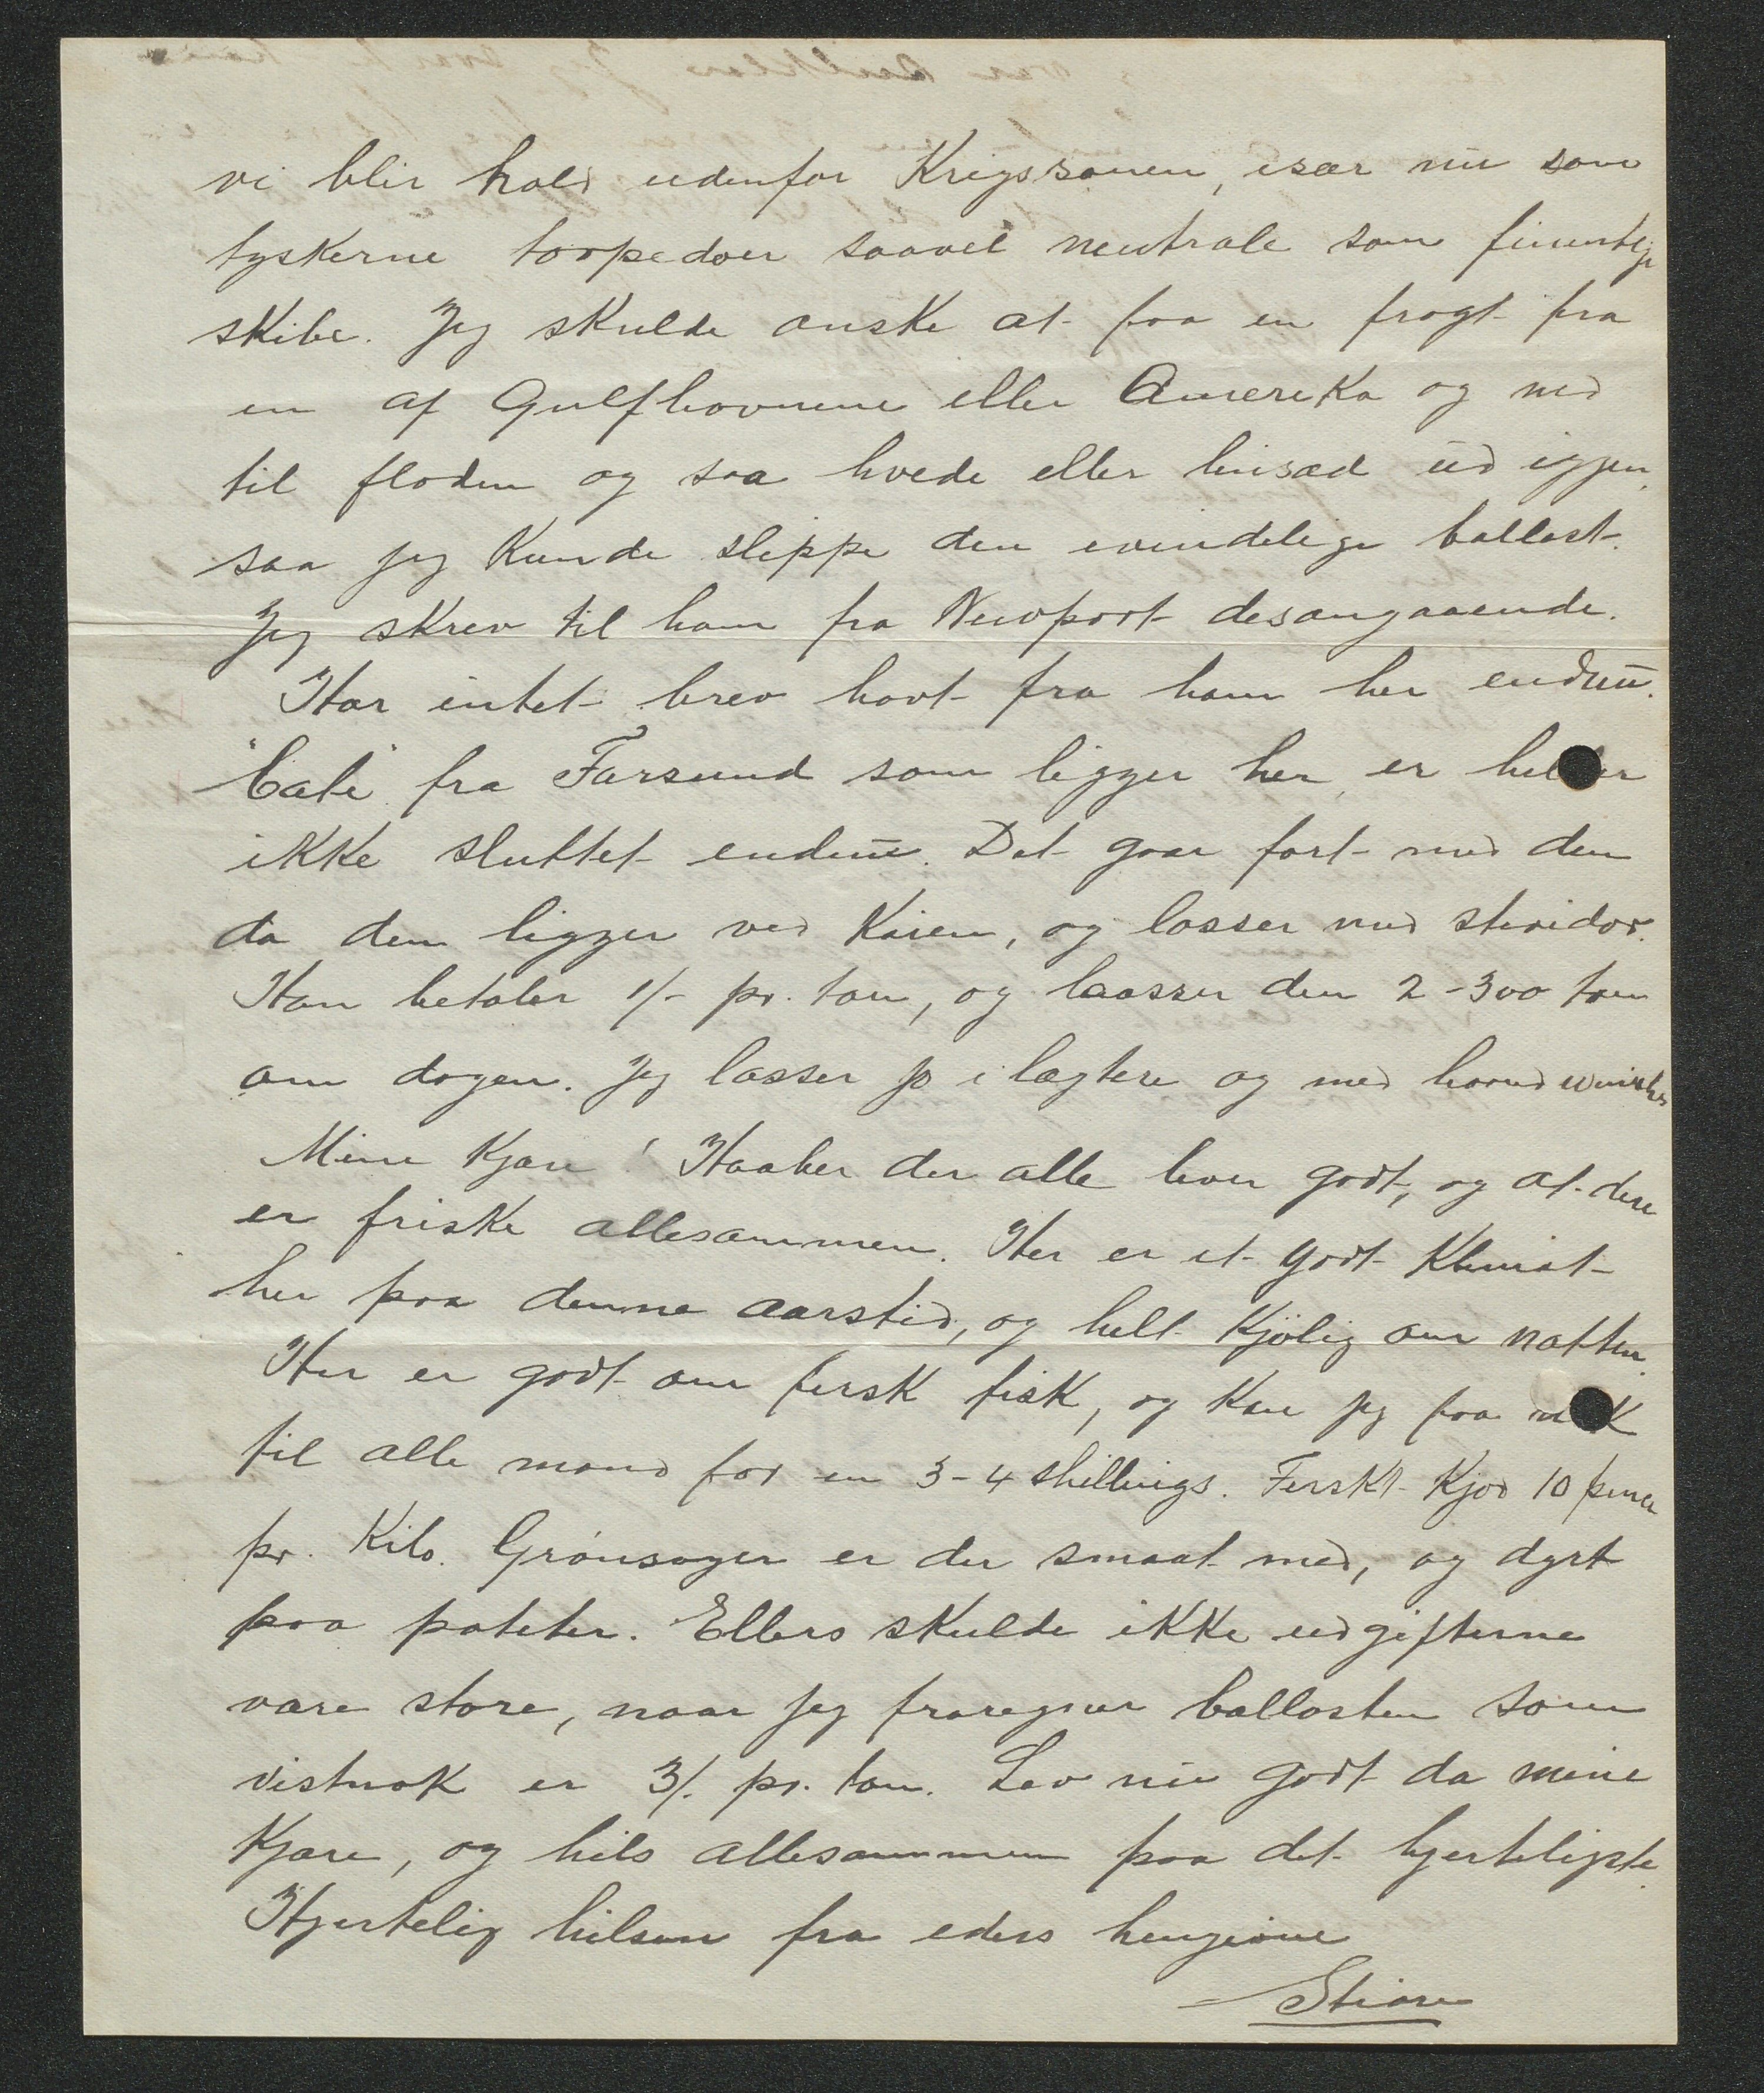 vi blir hold udenfor Krigssonen, især nu som
tyskerne torpedoer saavel neutrale som fiendtlige
skibe. Jeg skulde ønske at faa en fragt fra
en af Gulfhavnene eller Amereka og ned
til floden og saa hvede eller linsæd ud igjen,
saa jeg kunde slippe den evindelige ballast.
Jeg skrev til ham fra Newport desangaaende.
Har intet brev havt fra ham her endnu.
"Cate" fra Farsund som ligger her, er heller
ikke sluttet endnu. Det gaar fort med den
da dem ligger ved Kaien, og losser med stevidor.
Han betaler 1/- pr. ton, og laasser den 2-300 ton
om dagen. Jeg losser jo i lægtere og med haand winches
Mine Kjære! Haaber der alle lever godt, og at dere
er friske allesammen. Her er et godt Klimat
her paa denne aarstid, og helt Kjølig om natten.
Her er godt om fersk fisk, og Kan jeg faa nok
til alle mand for en 3-4 shillings. Ferskt Kjød 10 pence
pr. Kilo. Grønsager er der smaat med, og dyrt
paa poteter. Ellers skulde ikke udgifterne
være store, naar jeg fraregner ballasten som
vistnok er 3/. pr. ton. Lev nu godt da mine
Kjære, og hils allesammen paa det hjerteligste.
Hjertelig hilsen fra eders hengivne